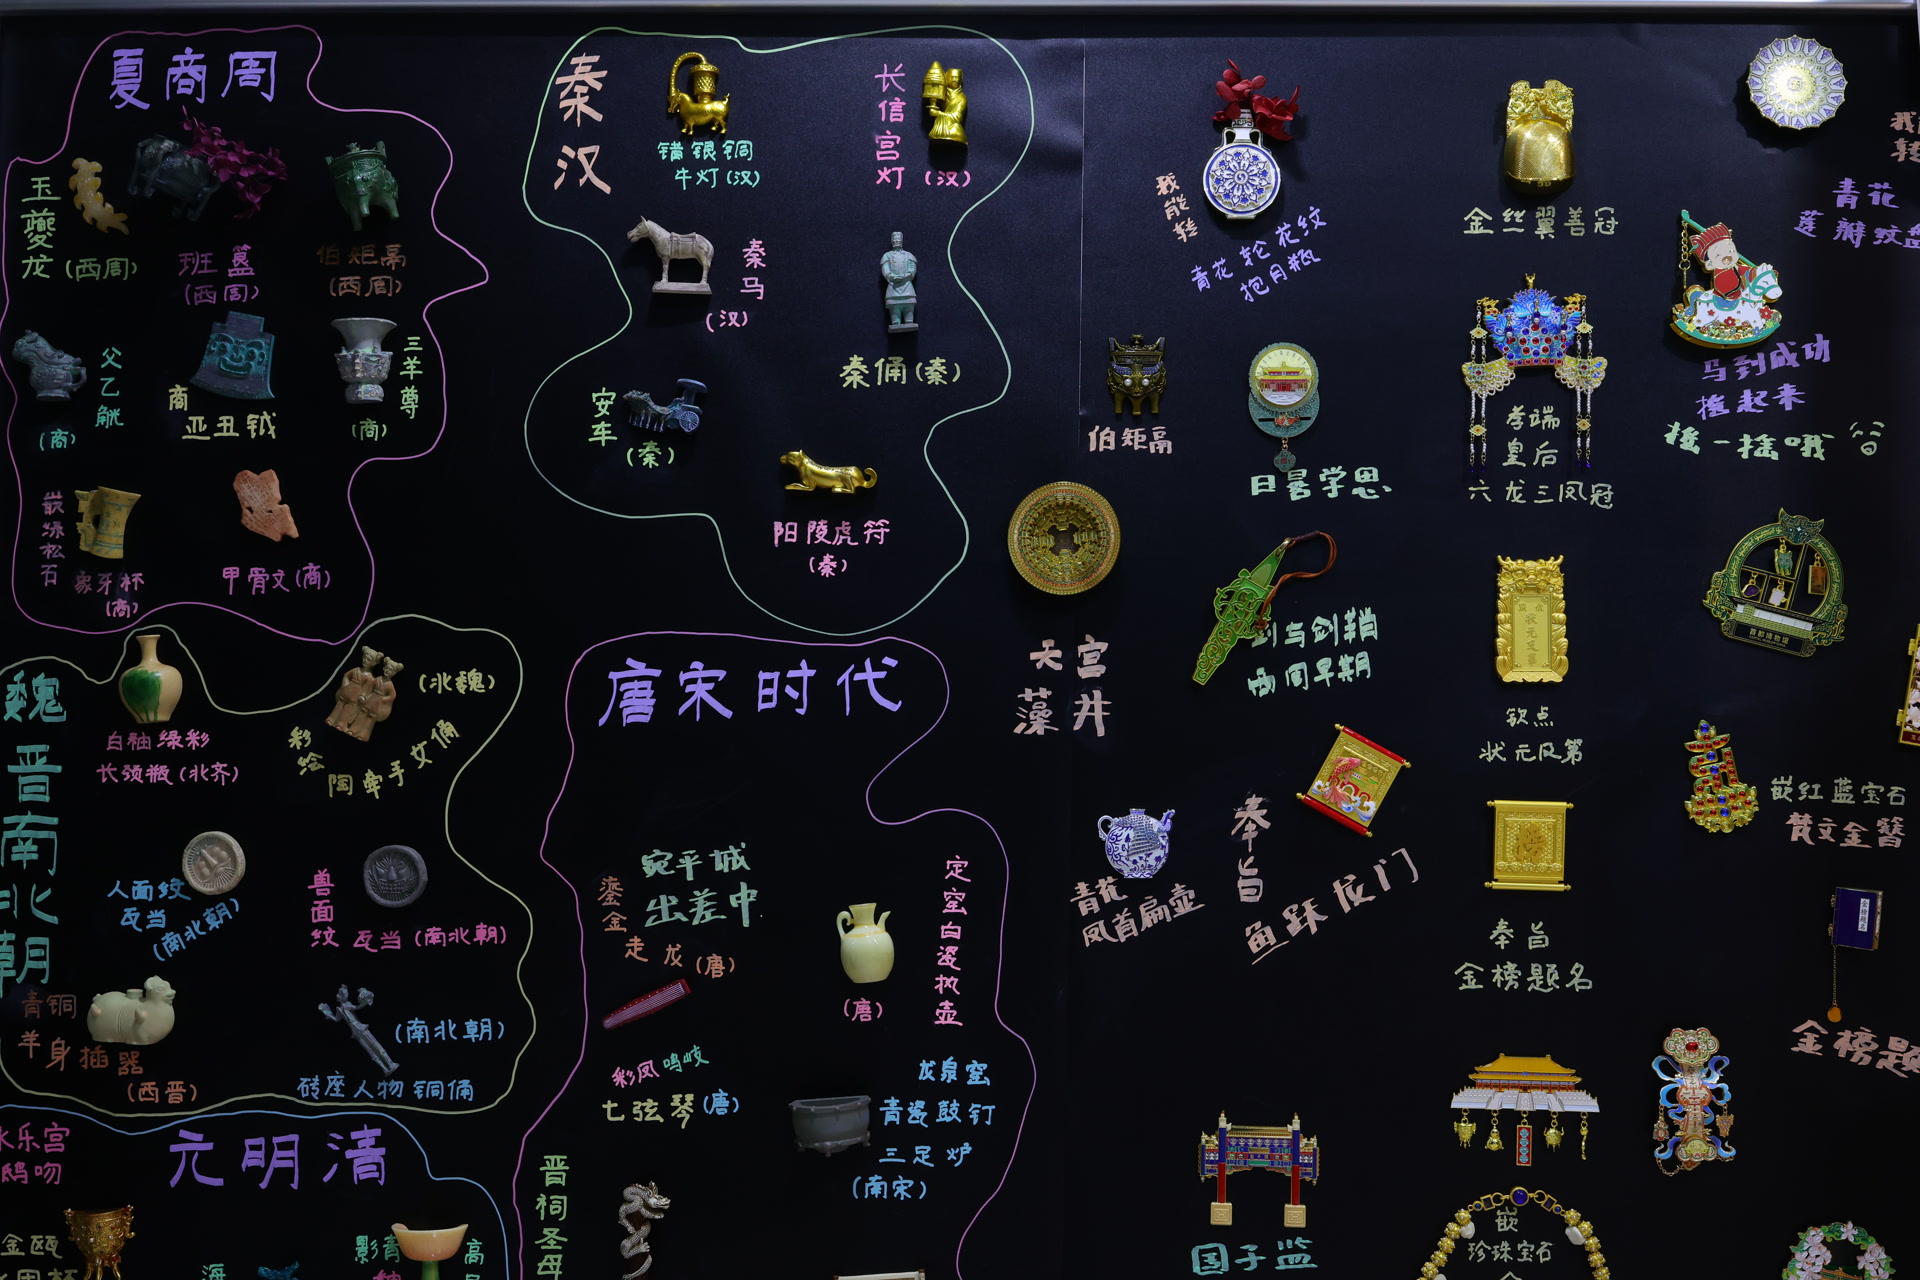 夏商周
玉夔龙(西周)
班簋
(西周)
伯矩鬲
(西周)
父乙觥
(商)
商
亚丑钺
三羊尊
(商)
嵌绿松石
象牙杯
(商)
甲骨文(商)
秦汉
错银铜
牛灯(汉)
长信宫灯
(汉)
秦马
(汉)
秦俑(秦)
安车
(秦)
阳陵虎符
(秦)
魏晋南北朝
白釉绿彩
长颈瓶(北齐)
(北魏)
彩绘
陶牵手女俑
人面纹
瓦当
(南北朝)
兽面纹
瓦当(南北朝)
青铜
羊身插器
(西晋)
(南北朝)
砖座人物铜俑
唐宋时代
宛平城
出差中
鎏金
走龙(唐)
定窑白瓷执壶
(唐)
彩凤鸣岐
七弦琴(唐)
龙泉窑
青瓷鼓钉
三足炉
(南宋)
晋祠圣母
元明清
永乐宫
鸱吻
金瓯
影青
海
高
我能转
青花轮花纹
抱月瓶
金丝翼善冠
我
转
青花
莲瓣纹盘
马到成功
摇起来
摇一摇哦
伯矩鬲
日晷学思
孝端
皇后
六龙三凤冠
天宫
藻井
剑与剑鞘
西周早期
首都博物馆
状元及第
钦点
状元及第
嵌红蓝宝石
梵文金簪
青花
凤首扁壶
奉旨
鱼跃龙门
奉旨
金榜题名
金榜题名
金榜题
国子监
嵌
珍珠宝石
金